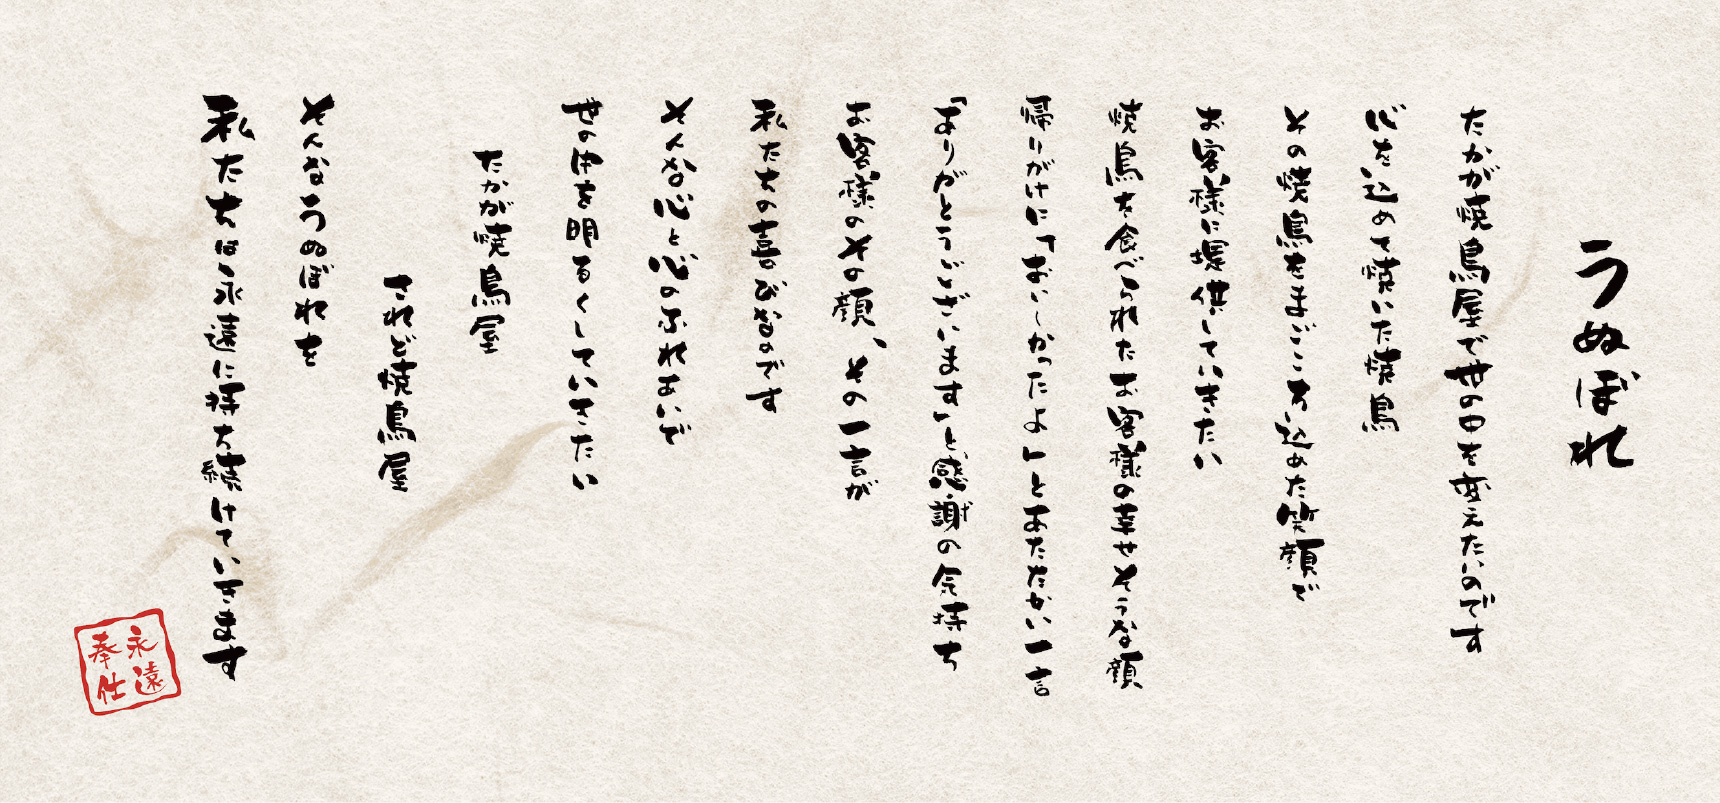 うぬぼれ
たかが焼鳥屋で世の中を変えたいのです
心を込めて焼いた焼鳥
その焼鳥をまごころ込めた笑顔で
お客様に提供していきたい
焼鳥を食べられたお客様の幸せそうな顔
帰りがけに「おいしかったよ」とあたたかい一言
「ありがとうございます」と感謝の気持ち
お客様のその顔、その一言が
私たちの喜びなのです
そんな心と心のふれあいで
世の中を明るくしていきたい
たかが焼鳥屋
されど焼鳥屋
そんなうぬぼれを
私たちは永遠に持ち続けていきます
永遠
奉仕